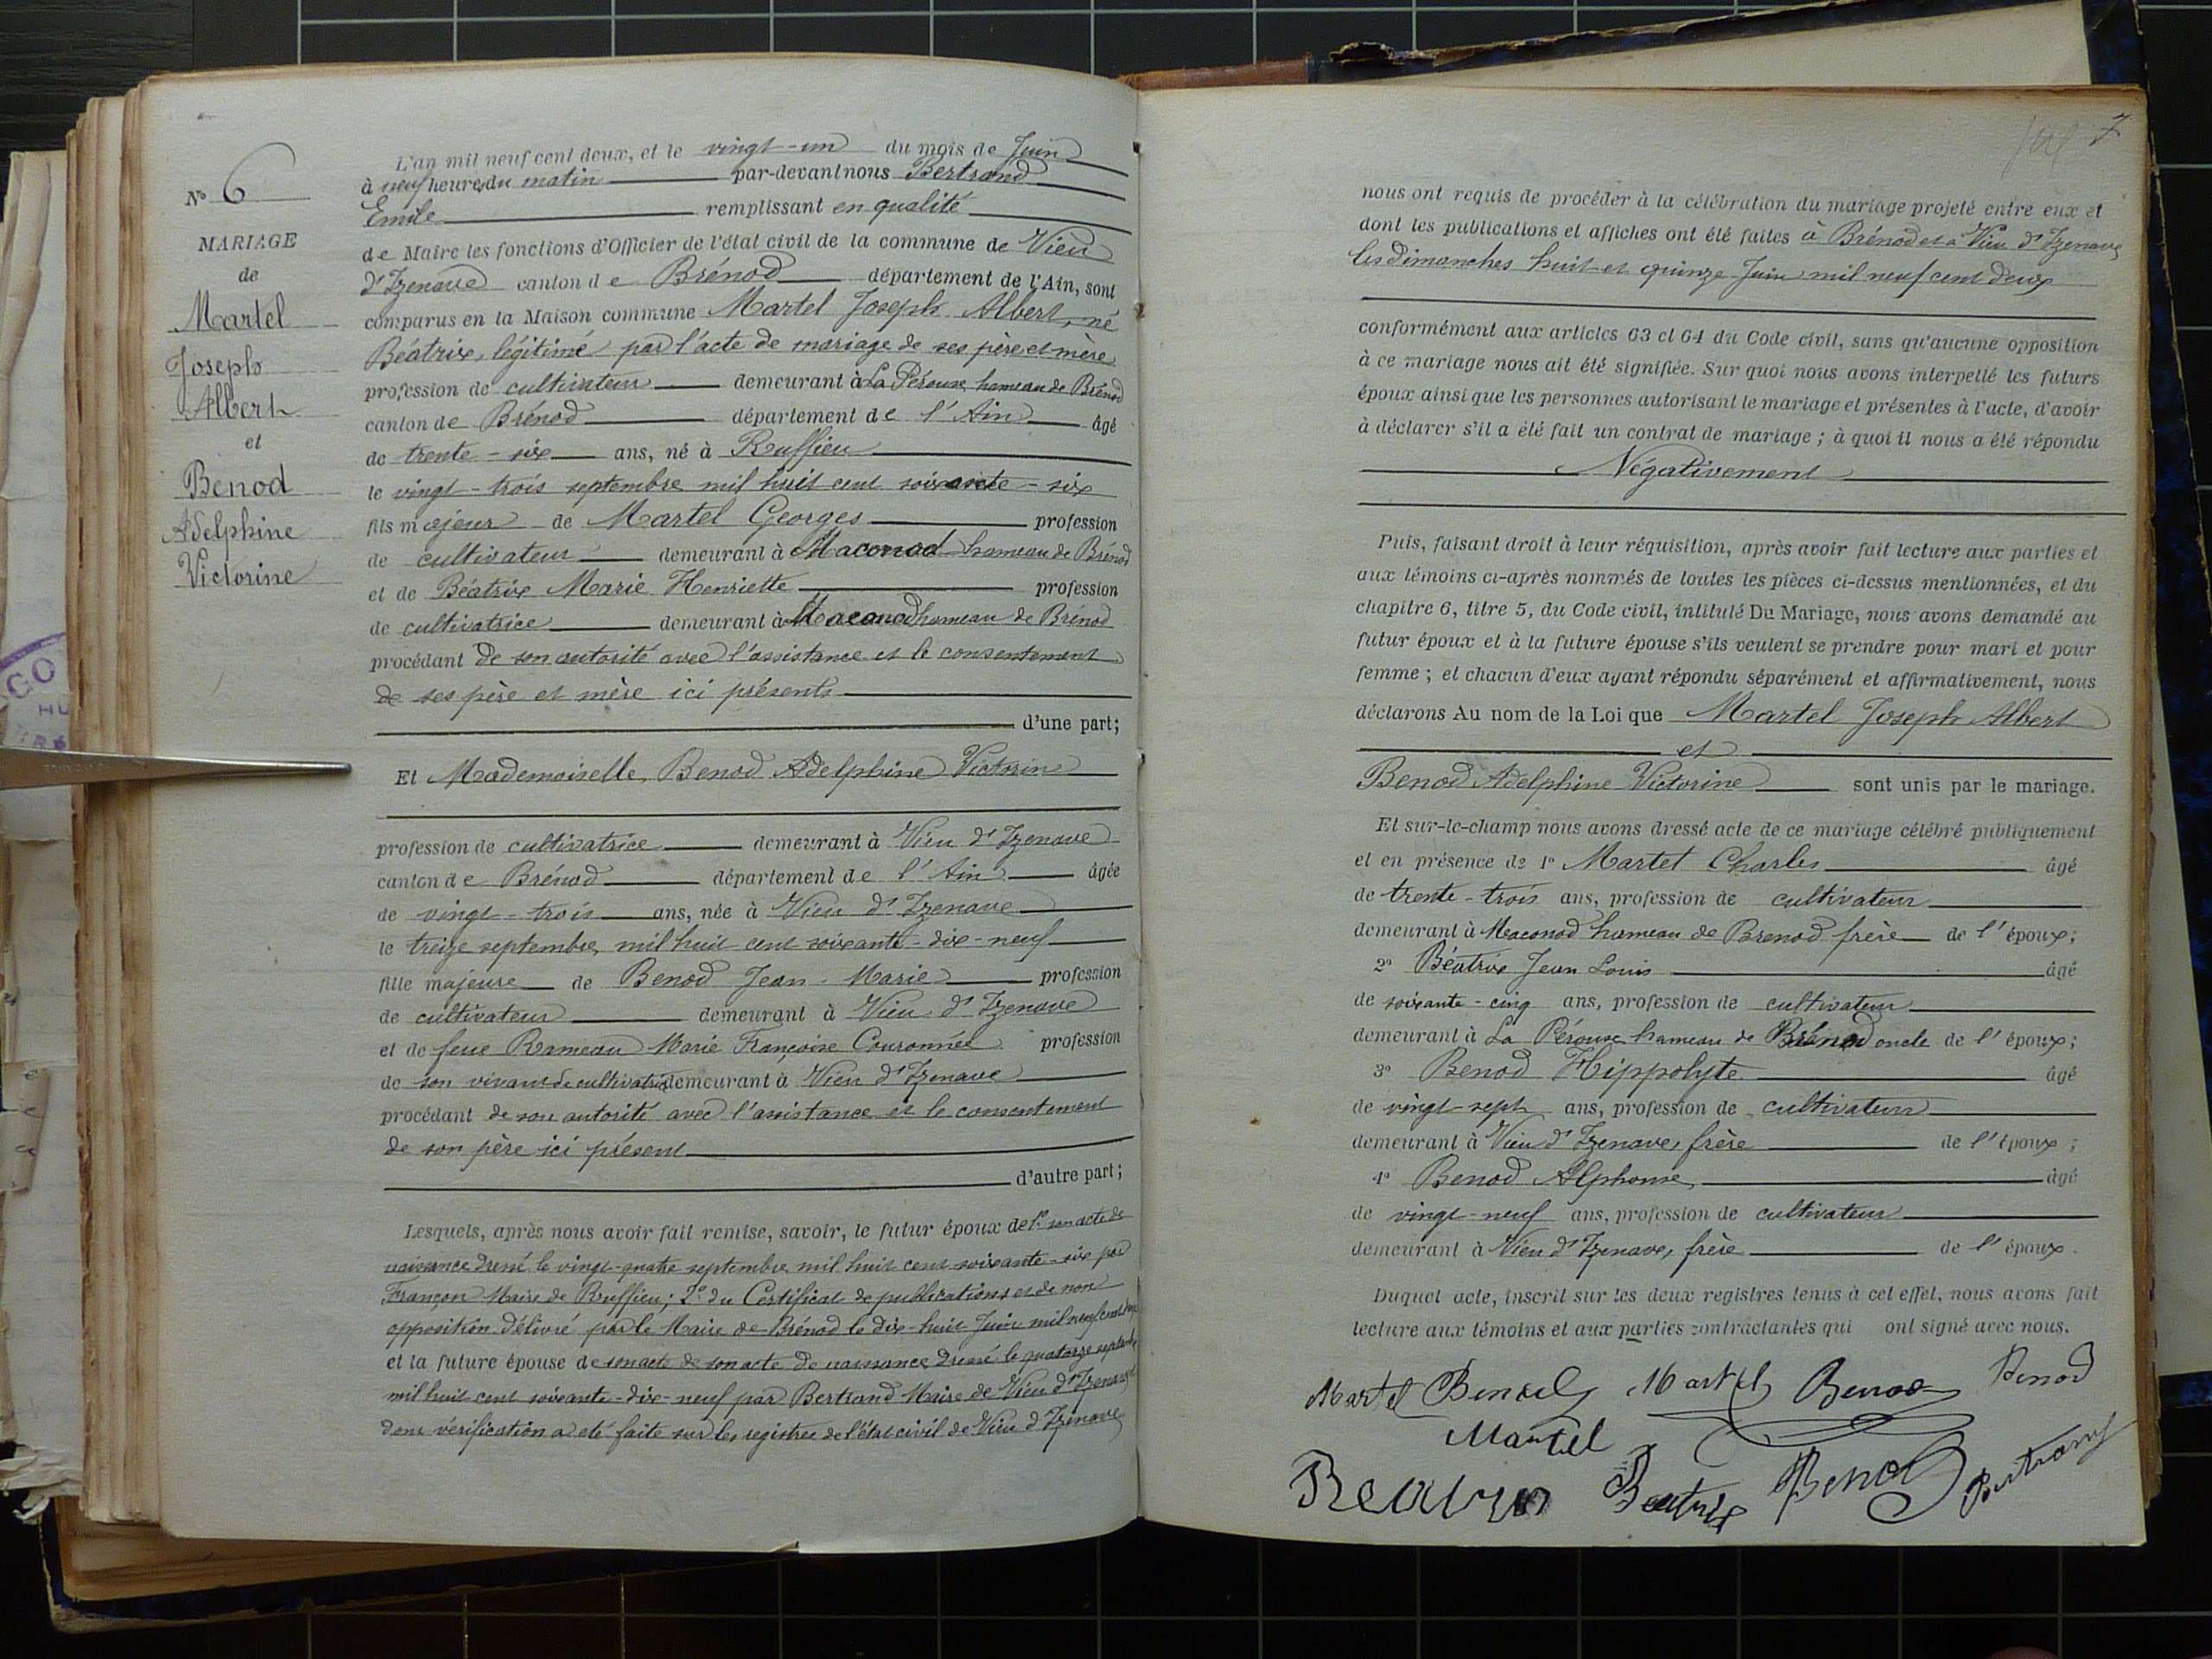 N° 6
MARIAGE
de
Martel
Joseph
Albert
et
Benod
Adelphine
Victorine
L'an mil neuf cent deux, et le vingt-un du mois de Juin
à neuf heures du matin par-devant nous Bertrand
Emile remplissant en qualité
de Maire les fonctions d'Officier de l'état civil de la commune de Vieu
d'Izenave canton de Brénod département de l'Ain, sont
comparus en la Maison commune Martel Joseph Albert, né
Béatrix, légitimé par l'acte de mariage de ses père et mère
profession de cultivateur demeurant à La Pérouse hameau de Brénod
canton de Brénod département de l'Ain âgé
de trente-six ans, né à Ruffieu
le vingt-trois septembre mil huit cent soixante-six
fils majeur de Martel Georges profession
de cultivateur demeurant à Maconod hameau de Brénod
et de Béatrix Marie Henriette profession
de cultivatrice demeurant à Maconod hameau de Brénod
procédant de son autorité avec l'assistance et le consentement
de ses père et mère ici présents
d'une part;
Et Mademoiselle, Benod Adelphine Victorin
profession de cultivatrice demeurant à Vieu d'Izenave
canton de Brénod département de l'Ain âgée
de vingt-trois ans, née à Vieu d'Izenave
le treize septembre mil huit cent soixante-dix-neuf
fille majeure de Benod Jean-Marie profession
de cultivateur demeurant à Vieu d'Izenave
et de feue Rameau Marie Françoise Couronnée profession
de son vivant de cultivatrice demeurant à Vieu d'Izenave
procédant de son autorité avec l'assistance et le consentement
de son père ici présent
d'autre part;
Lesquels, après nous avoir fait remise, savoir, le futur époux de 1° son acte de
naissance dressé le vingt-quatre septembre mil huit cent soixante-six par
Françon Maire de Ruffieu; 2° du Certificat de publications et de non
opposition délivré par le Maire de Brénod le dix-huit Juin mil neuf cent deux
et la future épouse de son acte de son acte de naissance dressé le quatorze septembre
mil huit cent soixante-dix-neuf par Bertrand Maire de Vieu d'Izenave
dont vérification a été faite sur les registres de l'état civil de Vieu d'Izenave
7
nous ont requis de procéder à la célébration du mariage projeté entre eux et
dont les publications et affiches ont été faites à Brénod et à Vieu d'Izenave
les Dimanches huit et quinze Juin mil neuf cent deux
conformément aux articles 63 et 64 du Code civil, sans qu'aucune opposition
à ce mariage nous ait été signifiée. Sur quoi nous avons interpellé les futurs
époux ainsi que les personnes autorisant le mariage et présentes à l'acte, d'avoir
à déclarer s'il a été fait un contrat de mariage; à quoi il nous a été répondu
Négativement
Puis, faisant droit à leur réquisition, après avoir fait lecture aux parties et
aux témoins ci-après nommés de toutes les pièces ci-dessus mentionnées, et du
chapitre 6, titre 5, du Code civil, intitulé Du Mariage, nous avons demandé au
futur époux et à la future épouse s'ils veulent se prendre pour mari et pour
femme; et chacun d'eux ayant répondu séparément et affirmativement, nous
déclarons Au nom de la Loi que Martel Joseph Albert
et
Benod Adelphine Victorine sont unis par le mariage.
Et sur-le-champ nous avons dressé acte de ce mariage célébré publiquement
et en présence de 1° Martel Charles âgé
de trente-trois ans, profession de cultivateur
demeurant à Maconod hameau de Brenod frère de l'époux;
2° Béatrix Jean Louis âgé
de soixante-cinq ans, profession de cultivateur
demeurant à La Pérouse hameau de Brénod oncle de l'époux;
3° Benod Hippolyte âgé
de vingt-sept ans, profession de cultivateur
demeurant à Vieu d'Izenave, frère de l'époux;
4° Benod Alphonse, âgé
de vingt-neuf ans, profession de cultivateur
demeurant à Vieu d'Izenave, frère de l'époux.
Duquel acte, inscrit sur les deux registres tenus à cet effet, nous avons fait
lecture aux témoins et aux parties contractantes qui ont signé avec nous.
Martel Benod Martel Benod Benod
Martel
Béatrix Beatrix Benod Bertrand